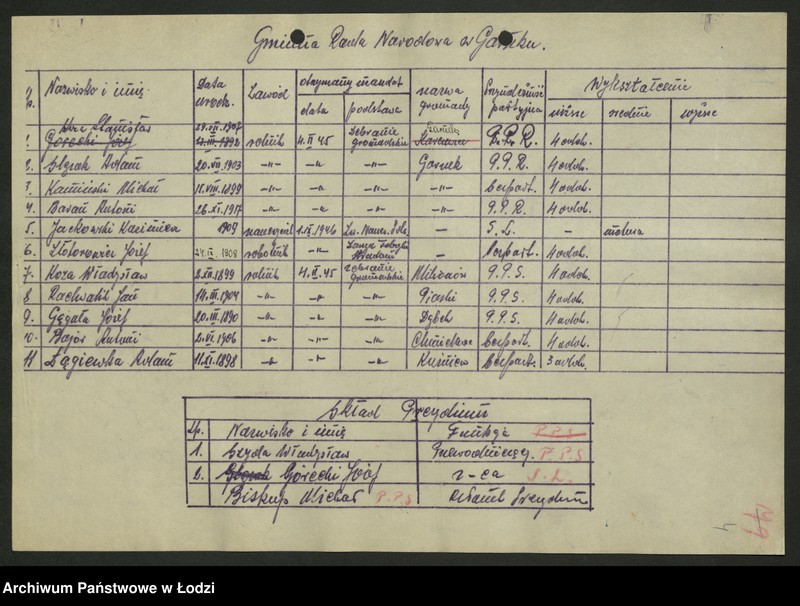 Gminna Rada Narodowa w Garnku.
Lp. Nazwisko i imię. Data urodz. Zawód otrzymany mandat nazwa gromady Przynależność partyjna Wykształcenie
data podstawa niższe średnie wyższe
1. Stanisław 1907 rolnik 4.II 45 Zebranie gromadzkie P.P.R. 4 oddz.
Górecki Józef 1892
2. Ślęzak Adam 20.VII.1903 -"- -"- -"- Garnek P.P.R. 4 oddz.
3. Kamiński Michał 15.VIII.1899 -"- -"- -"- -"- bezpart. 4 oddz.
4. Baran Antoni 26.XI.1917 -"- -"- -"- -"- P.P.R. 4 oddz.
5. Jackowski Kazimierz 1909 nauczyciel 1.IX.1946 Zw. Naucz. Pols. — S.L. – średnie
6. Józef 1908 robotnik -"- — bezpart. 4 oddz.
7. Koza Władysław 2.VI.1899 rolnik 4.II.45 zebranie gromadzkie P.P.S. 4 oddz.
8 Rachwalik Jan 14.III.1904 -"- -"- -"- Piaski P.P.S. 4 oddz.
9. Gągała Józef 20.III.1890 -"- -"- -"- P.P.S. 4 oddz.
10. Bajor Antoni 2.VI.1906 -"- -"- -"- bezpart. 4 oddz.
11 Łągiewka Adam 11.XI.1898 -"- -"- -"- Kuźnica bezpart. 3 oddz.
Skład Prezydium
Lp. Nazwisko i imię Funkcja P.P.S
1. Szyda Władysław Przewodniczący. P.P.S
2. Ślęzak Górecki Józef z-ca S.L.
Biskup Michał P.P.S członek Prezydium
4
49
Archiwum Państwowe w Łodzi